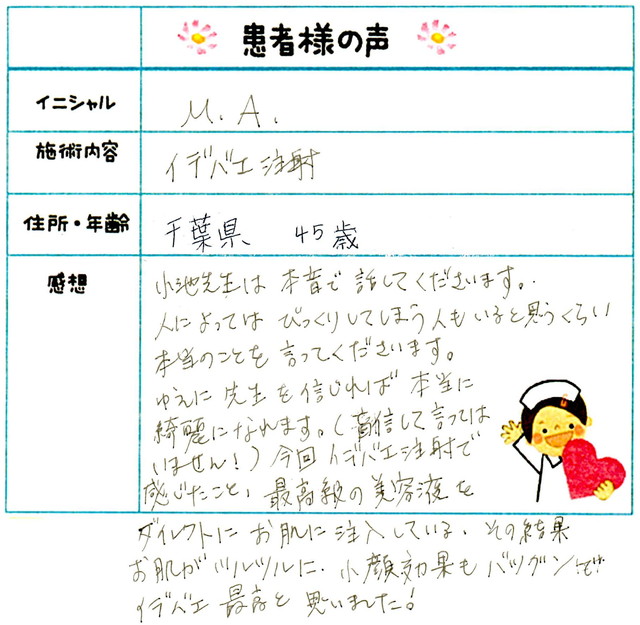 患者様の声
イニシャル
M. A.
施術内容
イデバエ注射
住所・年齢
千葉県 45歳
感想
小池先生は本音で話してくださいます。
人によってはびっくりしてしまう人もいると思うくらい
本当のことを言ってくださいます。
ゆえに先生を信じれば本当に
綺麗になれます。(盲信して言っては
いません!)今回イデバエ注射で
感じたこと、最高級の美容液を
ダイレクトにお肌に注入している、その結果
お肌がツルツルに、小顔効果もバツグンで
イデバエ最高と思いました!